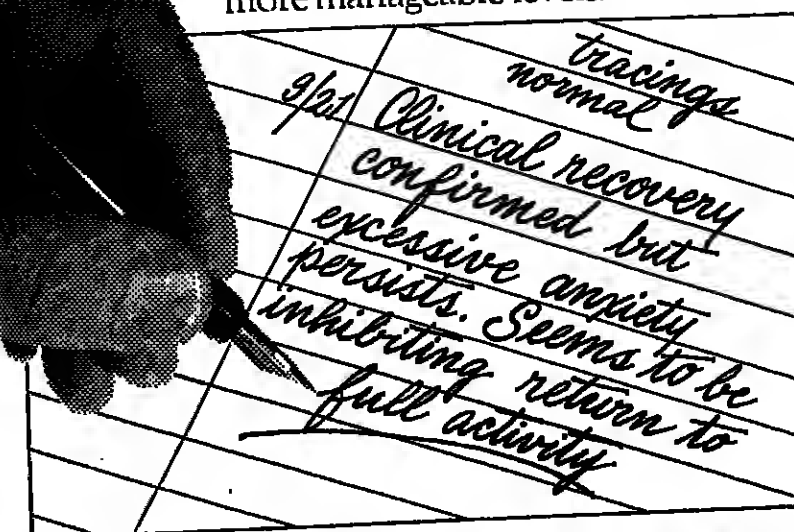 more manageable levels.
tracings
normal
9/21 Clinical recovery
confirmed but
excessive anxiety
persists. Seems to be
inhibiting return to
full activity